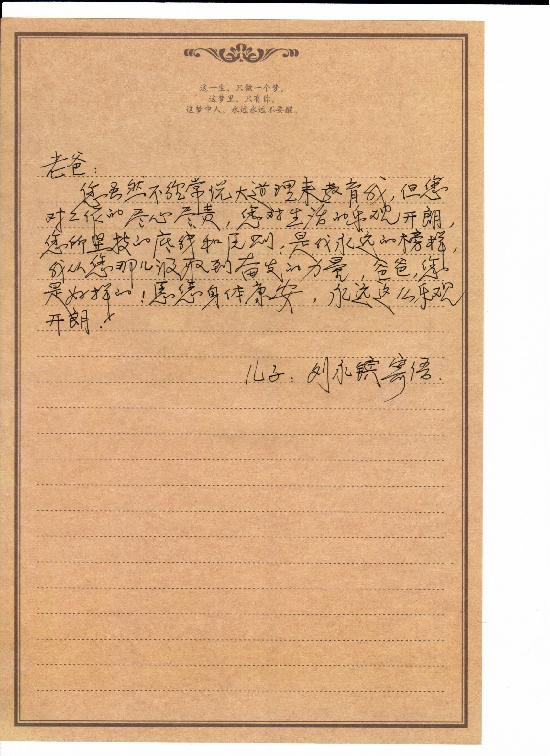 这一生，只做一个梦，
这梦里，只有你，
这梦中人，永远永远不要醒。
老爸：
您虽然不经常说大道理来教育我，但您
对工作的尽心尽责，您对生活的乐观开朗，
您所坚持的底线和原则，是我永远的榜样，
我从您那儿汲取到奋发的力量，爸爸，您
是好样的！愿您身体康安，永远这么乐观
开朗！
儿子：刘永镔寄语.